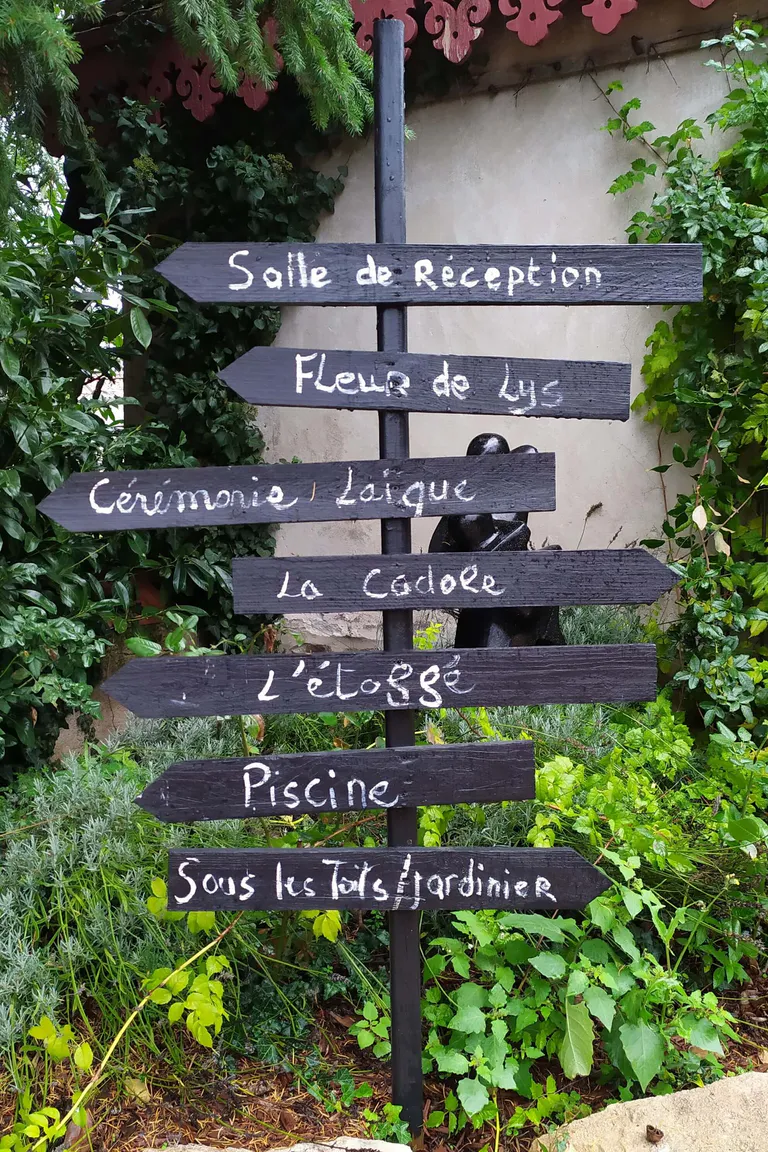 Salle de Réception
Fleur de Lys
Cérémonie Laïque
La Cadole
L'étoggé
Piscine
Sous les Toits/Jardinier